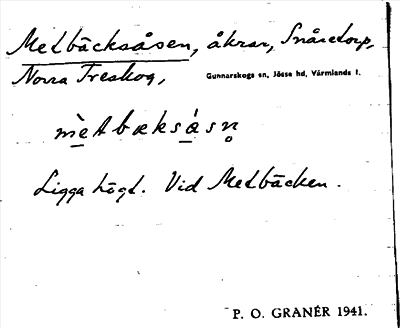 Metbäcksåsen, åkrar, Snåretorp,
Norra Treskog, Gunnarskogs sn, Jösse hd, Värmlands l.
mètbæksásn̥
Ligga högt. Vid Metbäcken.
P. O. GRANÉR 1941.